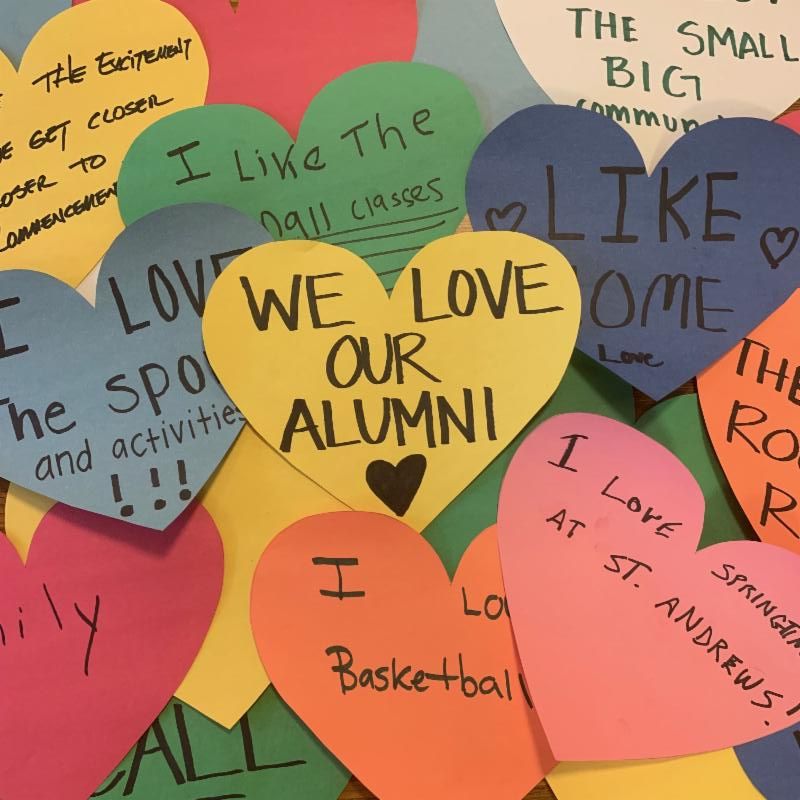 THE EXCITEMENT
GET CLOSER
TO
COMMENCEMENT
THE SMALL
BIG
commun
I Like The
small classes
LIKE
HOME
Love
I LOVE
The spo
and activities
!!!
WE LOVE
OUR
ALUMNI
THE
RO
R
I LOVE
SPRINGTIM
AT ST. ANDREWS!
I LO
Basketball
ily
CALL